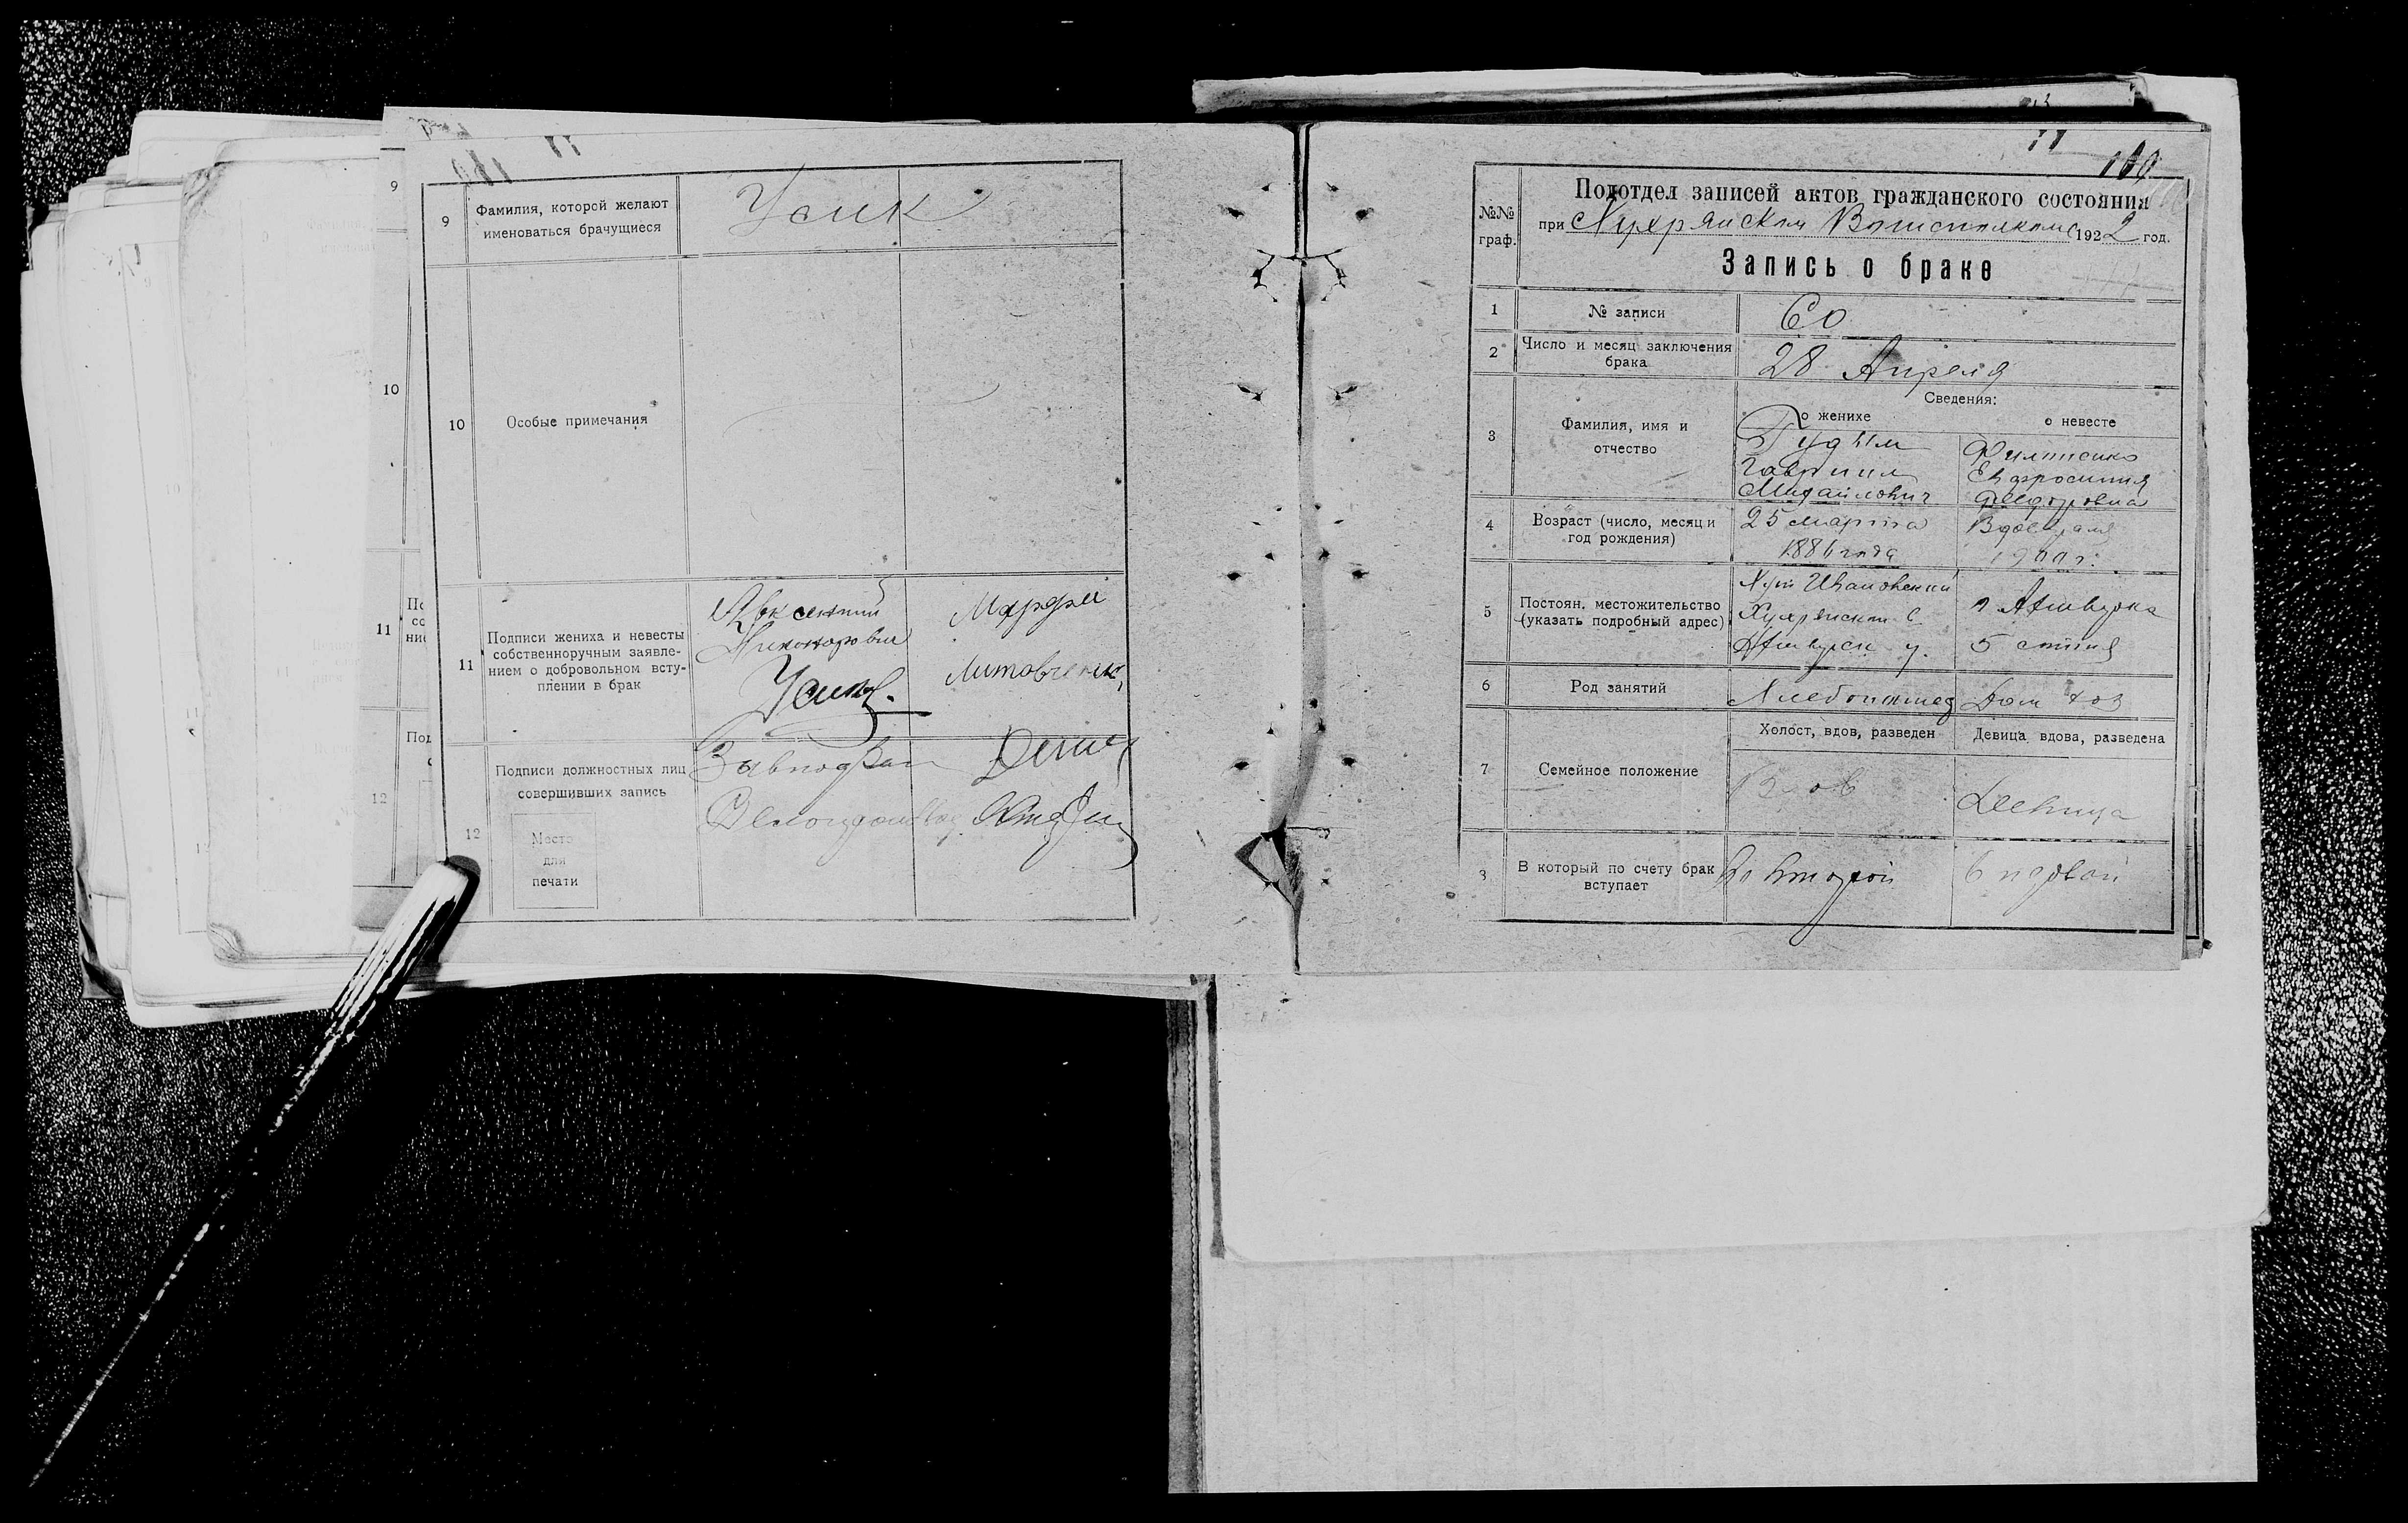 9
Фамилия, которой желают
именоваться брачущиеся
Усик
10
Особые примечания
11
Подписи жениха и невесты
собственноручным заявле-
нием о добровольном всту-
плении в брак
Авксентий
Никонорович
Усик
Марфа
Литовченко
12
Подписи должностных лиц
совершивших запись
Завподзаг
Место
для
печати
9
10
11
12
11
№№
граф.
Подотдел записей актов гражданского состояния
при Кухрянском Волисполкоме 1922 год.
Запись о браке
1
№ записи
60
2
Число и месяц заключения
брака
28 Апреля
Сведения:
3
Фамилия, имя и
отчество
о женихе
о невесте
Гудым
Гавриил
Михайлович
Филипенко
Евфросиния
Федоровна
4
Возраст (число, месяц и
год рождения)
25 марта
1886 года
5
Постоян. местожительство
(указать подробный адрес)
Хут Ивановский
г. Атшвурка
6
Род занятий
Хлебопашец
Дом хоз
7
Семейное положение
Холост, вдов, разведен
Девица, вдова, разведена
Вдов
Девица
8
В который по счету брак
вступает
Во второй
В первой